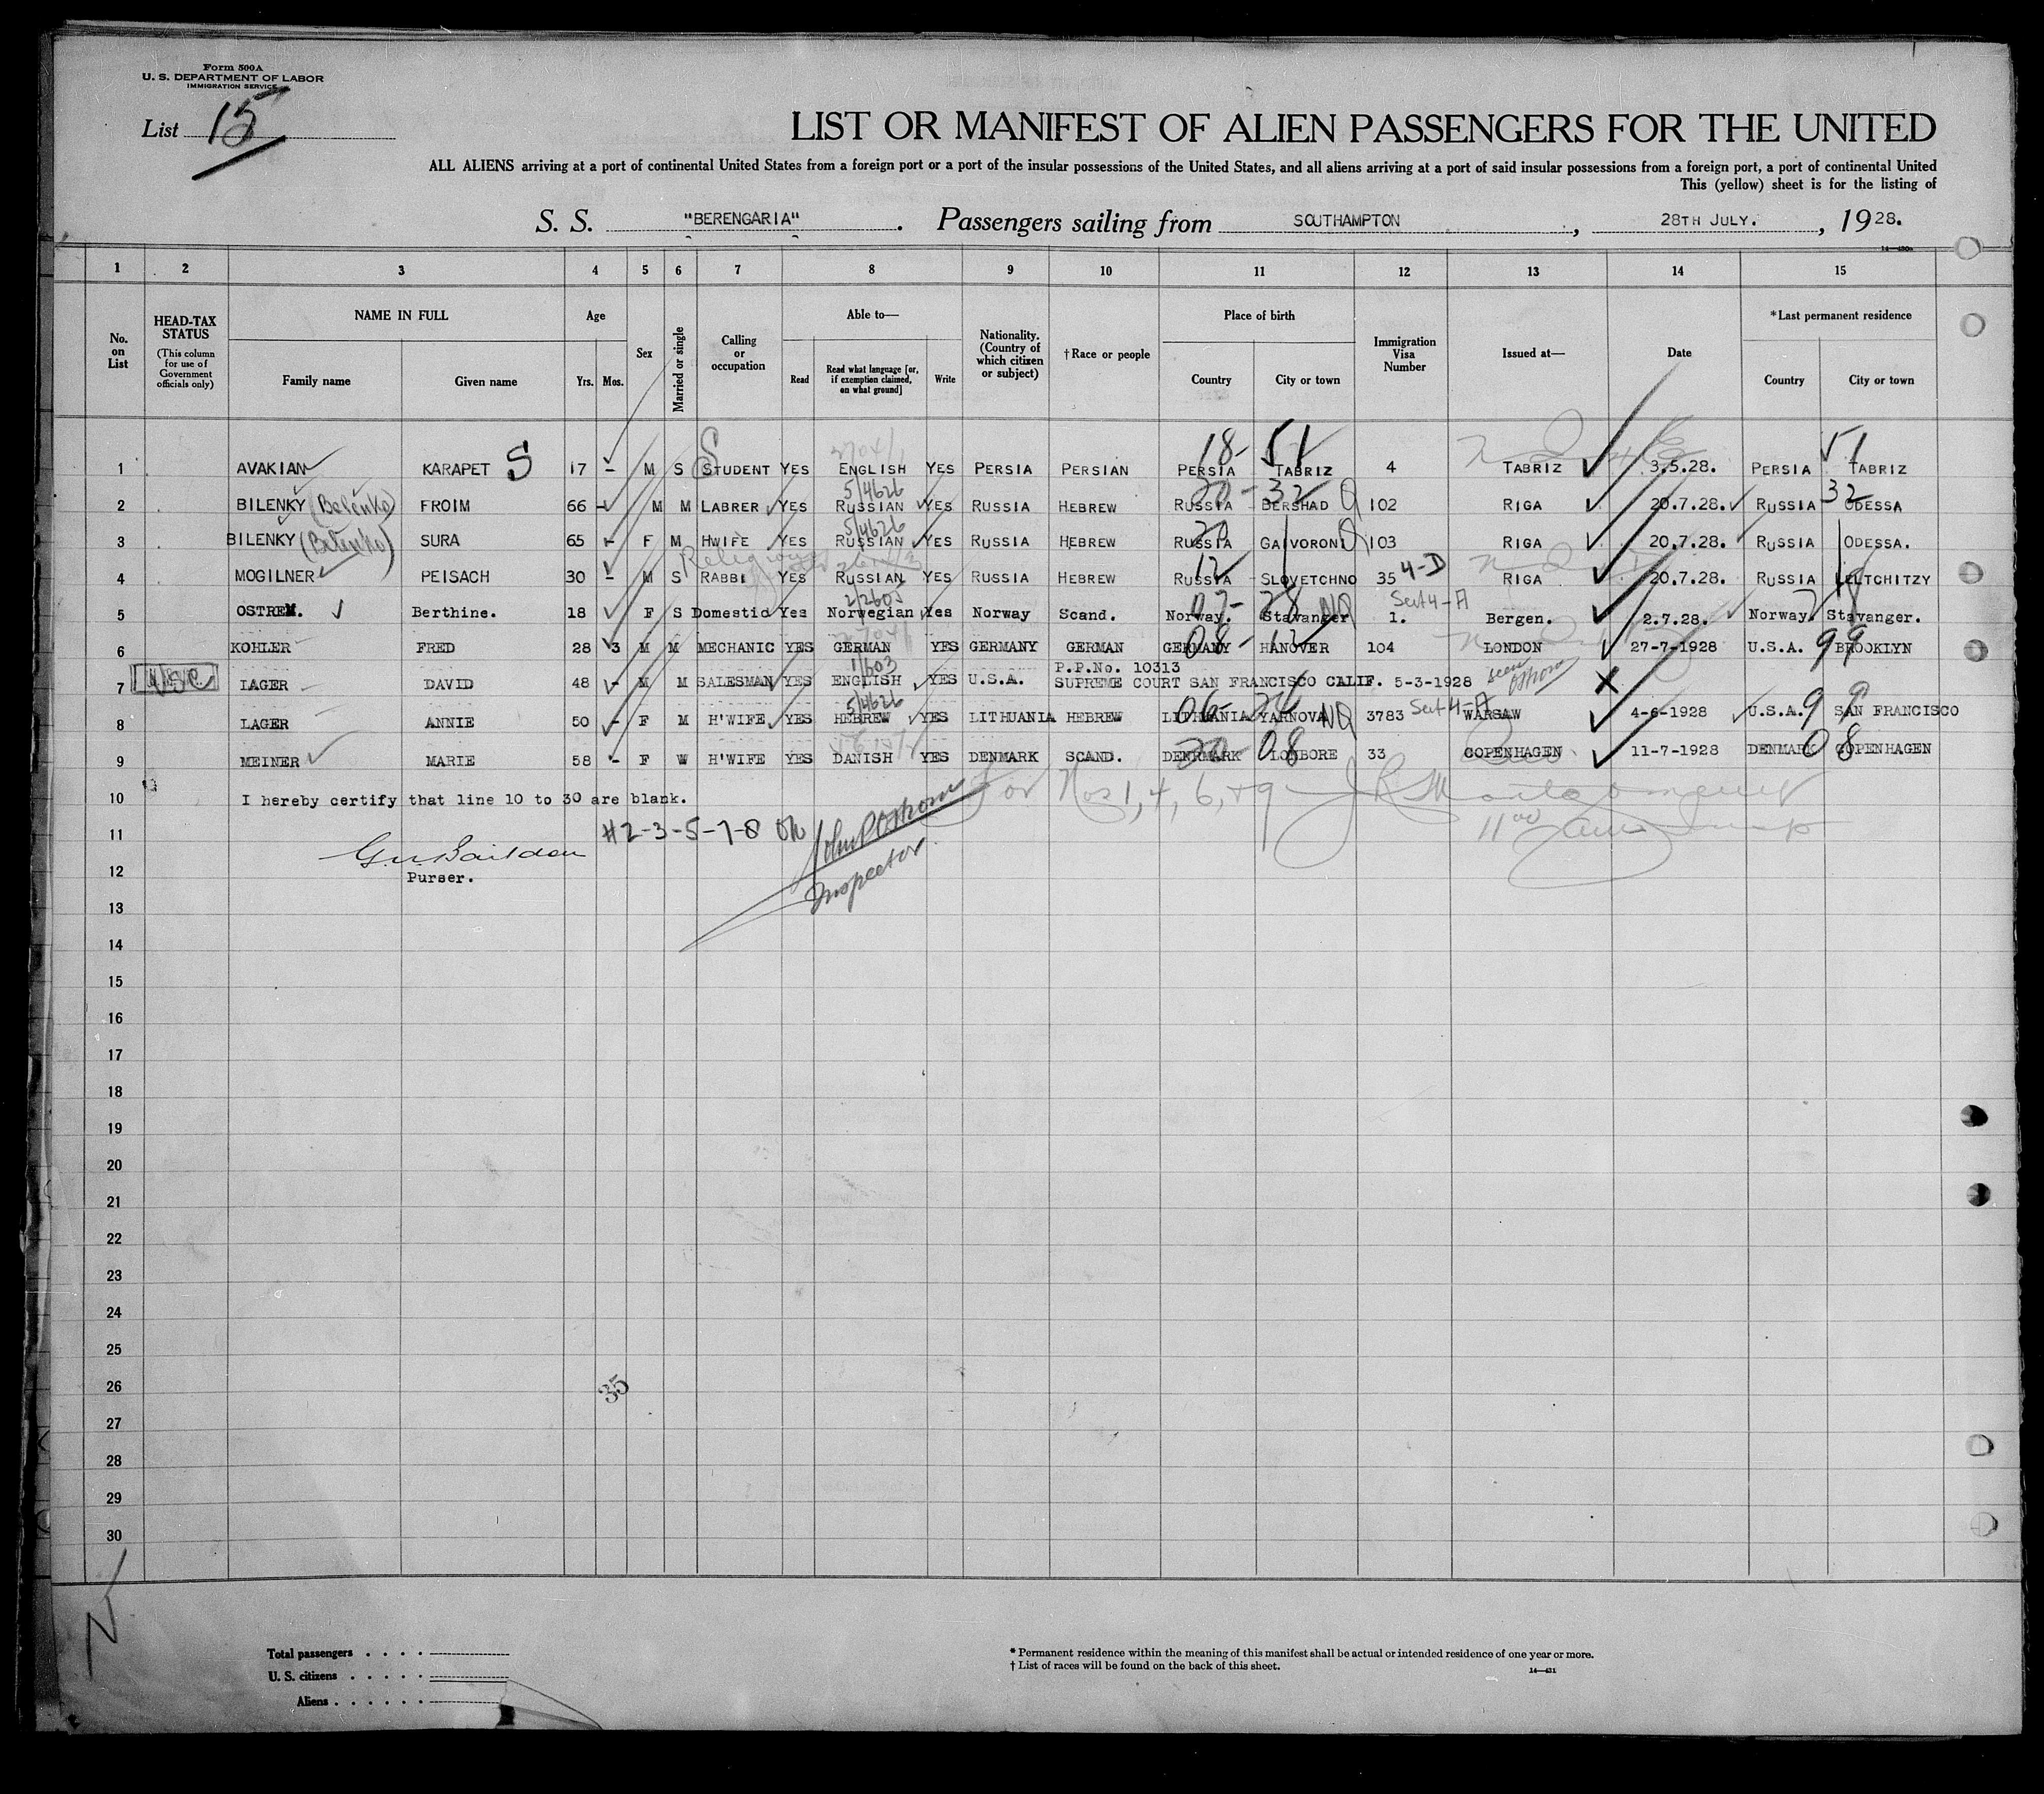 Form 500A
U. S. DEPARTMENT OF LABOR
IMMIGRATION SERVICE
List 15
LIST OR MANIFEST OF ALIEN PASSENGERS FOR THE UNITED
ALL ALIENS arriving at a port of continental United States from a foreign port or a port of the insular possessions of the United States, and all aliens arriving at a port of said insular possessions from a foreign port, a port of continental United
This (yellow) sheet is for the listing of
S. S. "BERENGARIA". Passengers sailing from SOUTHAMPTON, 28TH JULY., 1928.
1 2 3 4 5 6 7 8 9 10 11 12 13 14 15
No. on List
HEAD-TAX STATUS
(This column for use of Government officials only)
NAME IN FULL
Family name Given name
Age
Yrs. Mos.
Sex
Married or single
Calling or occupation
Able to—
Read
Read what language [or, if exemption claimed, on what ground]
Write
Nationality. (Country of which citizen or subject)
†Race or people
Place of birth
Country City or town
Immigration Visa Number
Issued at—
Date
*Last permanent residence
Country City or town
18- 51 51
1 AVAKIAN KARAPET S 17 - M S STUDENT YES ENGLISH YES PERSIA PERSIAN PERSIA TABRIZ 4 TABRIZ 3.5.28. PERSIA TABRIZ
5/4626 20-32 32
2 BILENKY (Belenko) FROIM 66 - M M LABRER YES RUSSIAN YES RUSSIA HEBREW RUSSIA BERSHAD 102 RIGA 20.7.28. RUSSIA ODESSA
5/4626 20
3 BILENKY (Belenko) SURA 65 - F M HWIFE YES RUSSIAN YES RUSSIA HEBREW RUSSIA GAIVORON 103 RIGA 20.7.28. RUSSIA ODESSA.
Religious 12
4 MOGILNER PEISACH 30 - M S RABBI YES RUSSIAN YES RUSSIA HEBREW RUSSIA SLOVETCHNO 35 4-D RIGA 20.7.28. RUSSIA LELTCHITZY
2/2605 07- 78 NQ Sect 4-A
5 OSTREM. Berthine. 18 F S Domestic Yes Norwegian Yes Norway Scand. Norway. Stavanger 1. Bergen. 2.7.28. Norway. Stavanger.
08- 12 99
6 KOHLER FRED 28 3 M M MECHANIC YES GERMAN YES GERMANY GERMAN GERMANY HANOVER 104 LONDON 27-7-1928 U.S.A. BROOKLYN
1/603 P.P.No. 10313
7 LAGER DAVID 48 - M M SALESMAN YES ENGLISH YES U.S.A. SUPREME COURT SAN FRANCISCO CALIF. 5-3-1928 seen Osborn
5/4626 06- NQ Sect 4-A 9 9
8 LAGER ANNIE 50 - F M H'WIFE YES HEBREW YES LITHUANIA HEBREW LITHUANIA YARNOVA 3783 WARSAW 4-6-1928 U.S.A. SAN FRANCISCO
08 08
9 MEINER MARIE 58 - F W H'WIFE YES DANISH YES DENMARK SCAND. DENRMARK LOUBORE 33 COPENHAGEN 11-7-1928 DENMARK COPENHAGEN
10 I hereby certify that line 10 to 30 are blank.
For Nos 1, 4, 6, +9 J R Montgomery
11 #2-3-5-7-8 OK John P Osborn
Inspector
12 Purser.
13
14
15
16
17
18
19
20
21
22
23
24
25
26 35
27
28
29
30
Total passengers
U. S. citizens
Aliens
* Permanent residence within the meaning of this manifest shall be actual or intended residence of one year or more.
† List of races will be found on the back of this sheet.
14—431